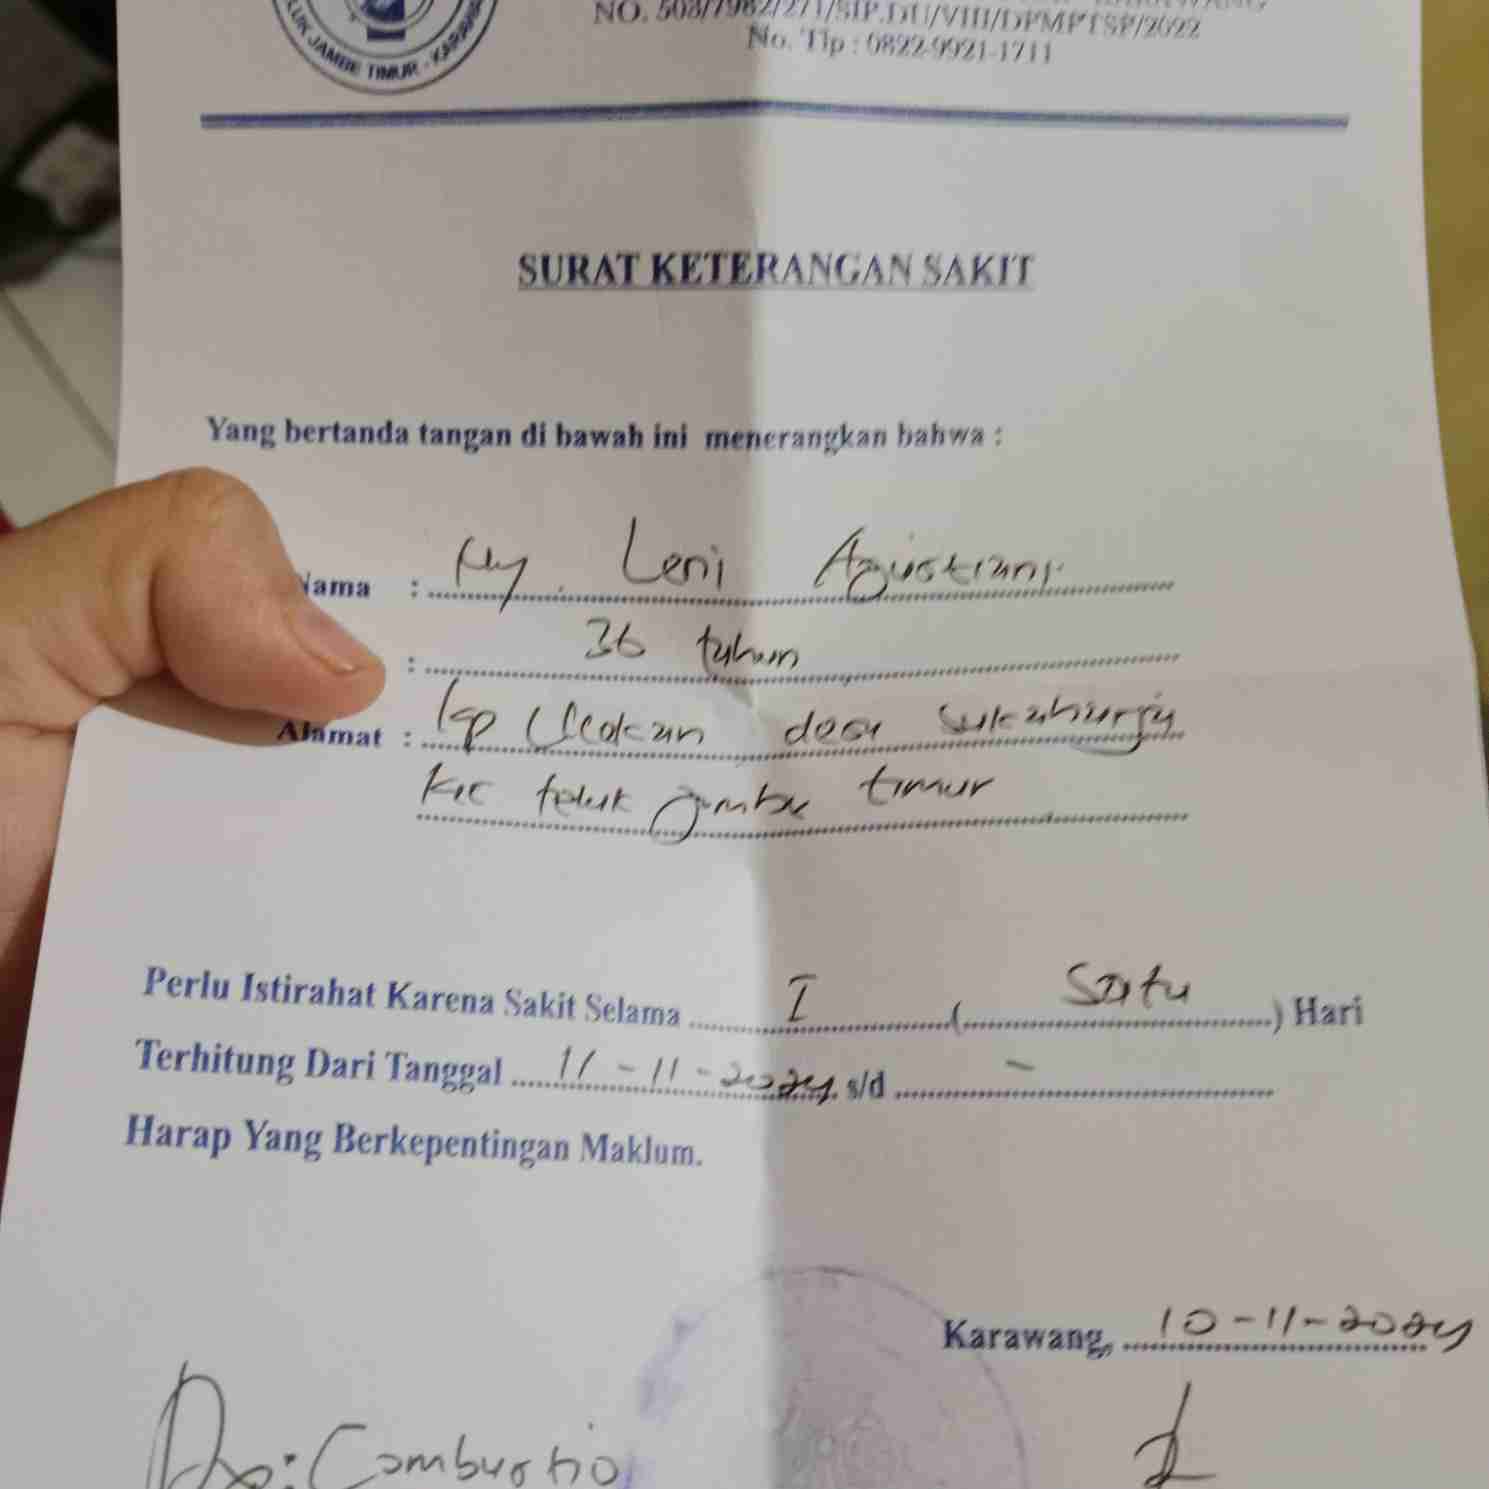 LUK JAMBE TIMUR - KARAWA
NO. 503/7982/271/SIP.DU/VIII/DPMPTSP/2022
No. Tlp : 0822-9921-1711
SURAT KETERANGAN SAKIT
Yang bertanda tangan di bawah ini menerangkan bahwa :
Nama : Ny. Leni Agustiani
: 36 tahun
Alamat : Kp Cilokan desa Sukaharja
Kec teluk jambe timur
Perlu Istirahat Karena Sakit Selama I ( Satu ) Hari
Terhitung Dari Tanggal 11-11-2024 s/d -
Harap Yang Berkepentingan Maklum.
Karawang, 10-11-2024
Dx: Combustio